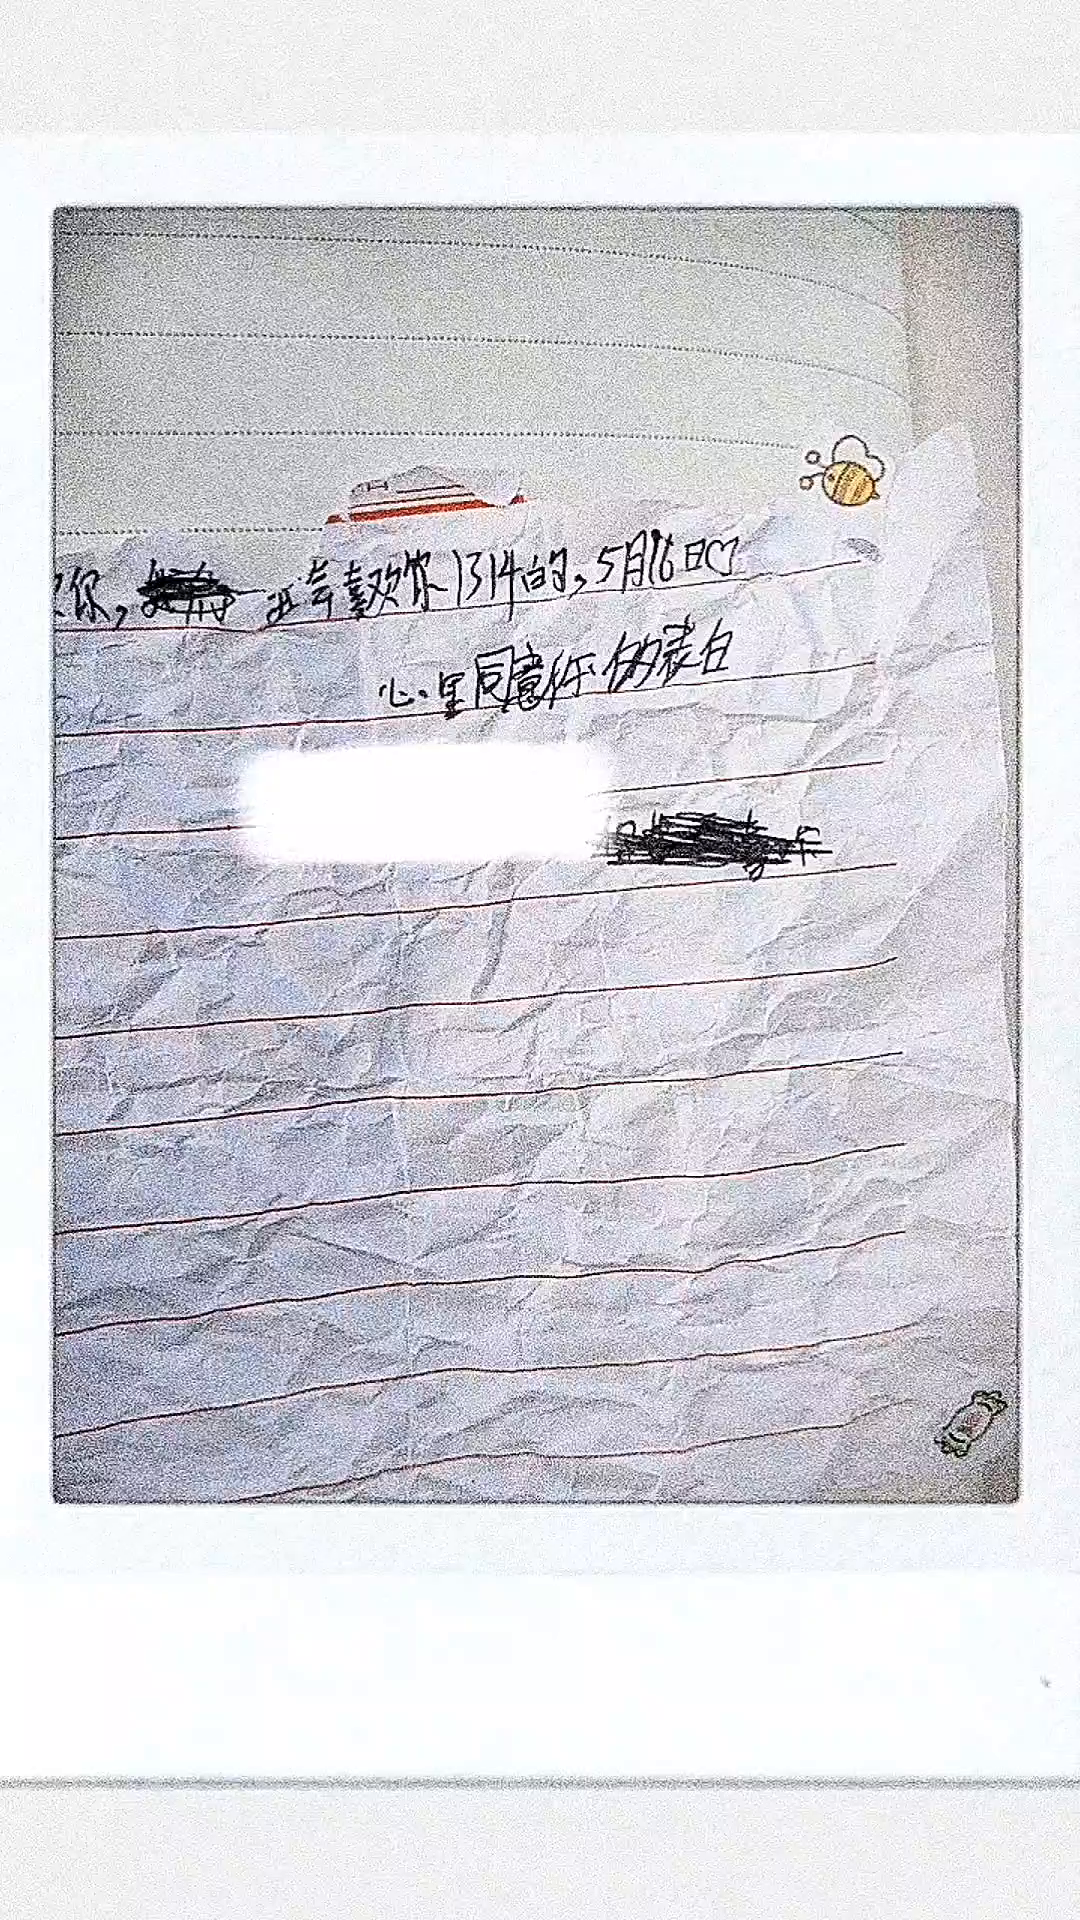 你, 喜欢你1314的, 5月16日♡
心里同意你的表白